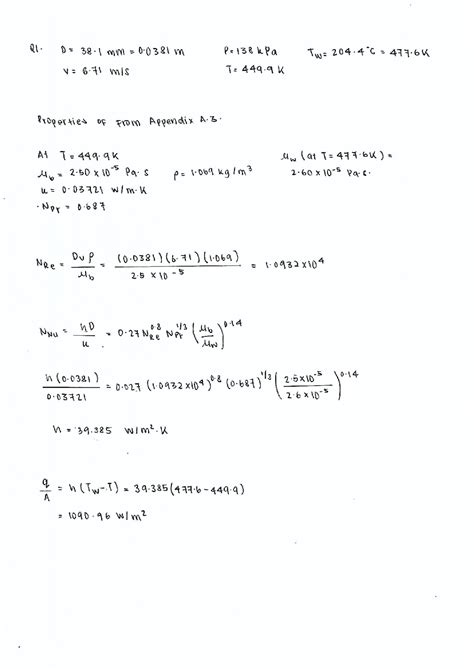 Q1. D = 38.1 mm = 0.0381 m P = 138 kPa Tw = 204.4°C = 477.6 K
v = 6.71 m/s T = 449.9 K
Properties of From Appendix A.3.
At T = 449.9 K μw (at T = 477.6K) =
μb = 2.50 x 10^-5 Pa.s ρ = 1.069 kg/m^3 2.60 x 10^-5 Pa.s.
k = 0.03721 W/m.K
NPr = 0.687
NRe = Dvρ / μb = (0.0381)(6.71)(1.069) / 2.5 x 10^-5 = 1.0932 x 10^4
NNu = hD / k = 0.27 NRe^0.8 NPr^1/3 (μb / μw)^0.14
h (0.0381) / 0.03721 = 0.027 (1.0932 x 10^4)^0.8 (0.687)^1/3 (2.5 x 10^-5 / 2.6 x 10^-5)^0.14
h = 39.385 W/m^2.K
q / A = h (Tw - T) = 39.385 (477.6 - 449.9)
= 1090.96 W/m^2